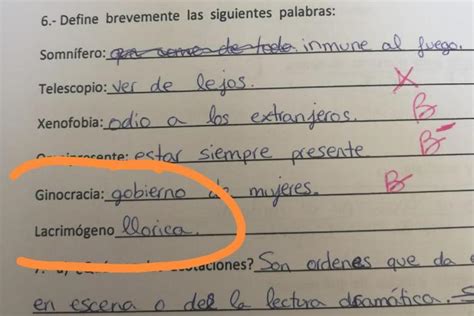 6.- Define brevemente las siguientes palabras:
Somnífero: que come de todo inmune al fuego.
Telescopio: ver de lejos. X
Xenofobia: odio a los extranjeros. B
estar siempre presente B-
Ginocracia: gobierno de mujeres. B
Lacrimógeno llorica.
Son ordenes que da
en escena o de la lectura dramática.